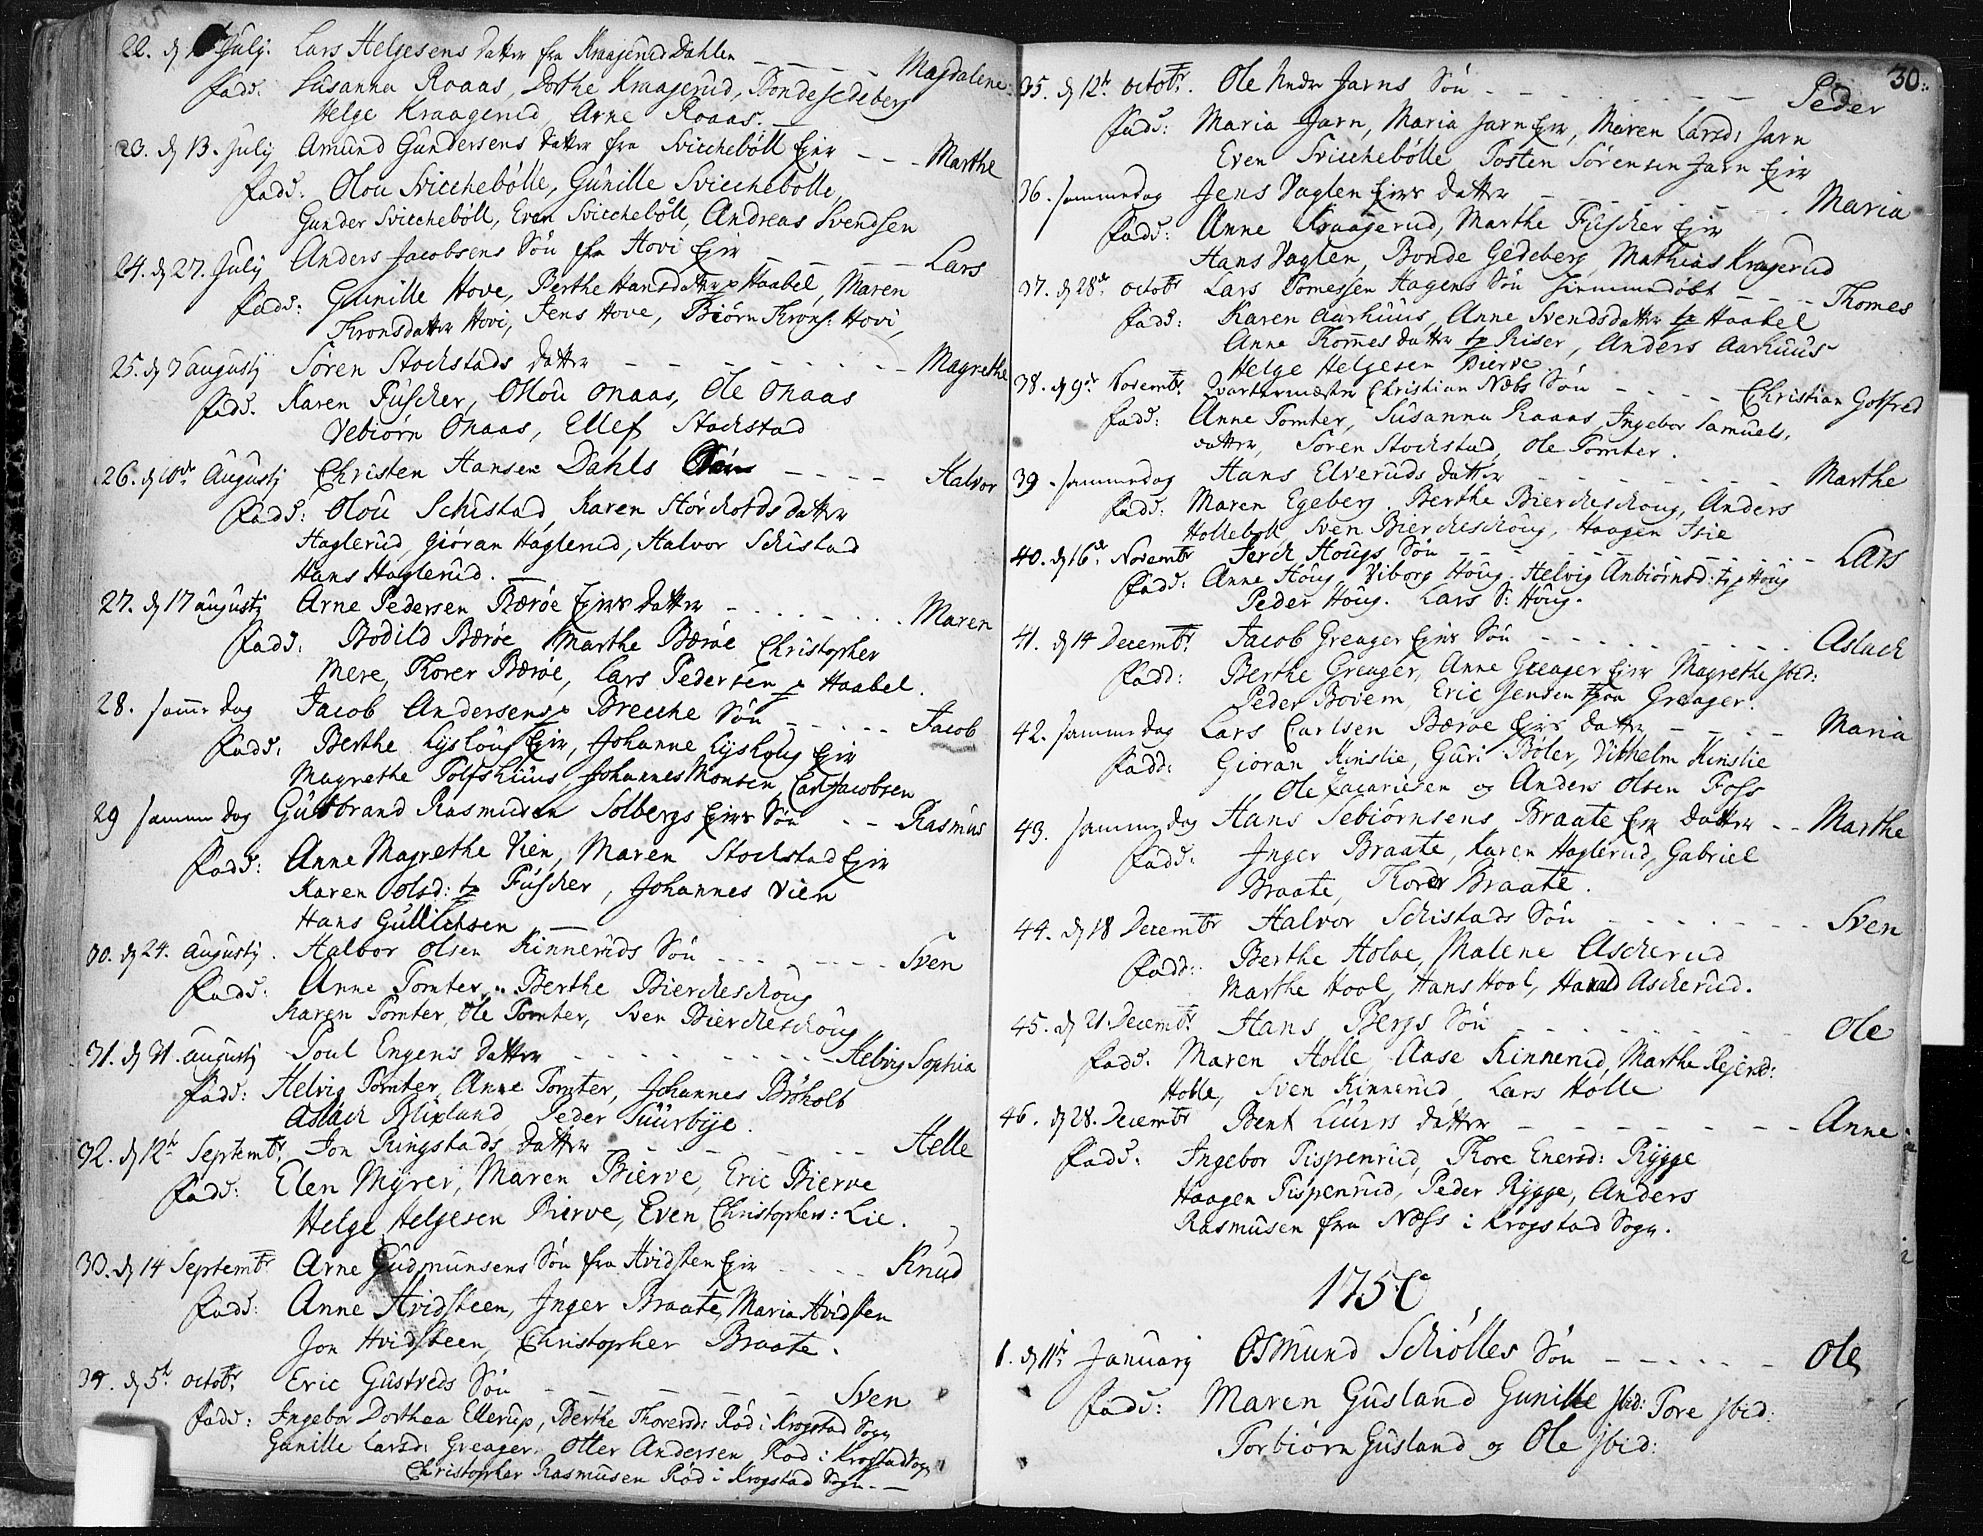 22. d July. Lars Helgesens datter fra Kraagerud Dahlen - - - - Magdalene
Fadd: Susanna Roaas, Dorthe Kraagerud, Bonde Gedeberg
Helge Kraagerud, Arne Roaas.
23. d 13. July Amund Gundersens datter fra Svicchebøll Ejer - - - Marthe
Fadd: Olou Svicchebølle, Gunille Svicchebølle,
Gunder Svicchebøll, Even Svicchebøll, Andreas Svendsen
24. d 27. July Anders Jacobsens Søn fra Hovi Ejer - - - - Lars
Fadd: Gunille Hove, Berthe Hansdatter p Haabel, Maren
Thronsdatter Hovi, Jens Hove, Biørn Throns: Hovi,
25. d 3 augustj Søren Stockstads datter - - - - - - Magrethe
Fadd. Karen Fuscher, Olou Onaas, Ole Onaas
Vebiørn Onaas, Ellef Stockstad
26. d 10de Augustj Christen Hansen Dahls Søn - - - - Halvor
Fadd: Olou Schistad, Karen Størchordsdatter
Haglerud, Giøran Haglerud, Halvor Schistad
Hans Haglerud.
27. d 17 augustj Arne Pedersen Bærøe Ejers datter - - - - - Maren
Fadd: Bodild Bærøe Marthe Bærøe Christopher
Mere, Thorer Bærøe, Lars Pedersen p Haabel.
28. samme dag Jacob Andersens p Brecche Søn - - - - Jacob
Fadd: Berthe Lysloug Ejer, Johanne Lysloug Ejer
Magrethe Tolfshuus Johannes Monsen, Carl Jacobsen
29 samme dag Gulbrand Rasmusen Solbergs Ejers Søn - - Rasmus
Fadd: Anne Magrethe Vien, Maren Stockstad Ejer
Karen Olsd: tp Fuscher, Johannes Vien
Hans Gullichsen
30. d 24. augustj. Halvor Olsen Kinneruds Søn - - - - - Sven
Fadd: Anne Tomter, Berthe Bierckeschoug
Karen Tomter, Ole Tomter, Sven Bierckeschoug
31. d 31. augustj Poul Engens datter - - - - - - Helvig Sophia
Fadd: Helvig Tomter, Anne Tomter, Johannes Brøholt
Aslack Blixland, Peder Suurbye.
32. d 12te Septembr. Jon Ringstads datter - - - - - Helle
Fadd: Elen Myrer, Maren Bierve, Eric Bierve
Helge Helgesen Bierve, Even Christophers: Lie.
33. d 14 Septembr Arne Gudmunsens Søn fra Hvidsten Ejer - - - - Knud
Fadd: Anne Hvidsteen, Inger Braate, Maria Hvidsten
Jon Hvidsteen, Christopher Braate.
34. d 5te octobr. Eric Gustveds Søn - - - - - - Sven
Fadd: Ingebor Dorthea Ellerup, Berthe Thorersd: Rød i Krogstad Sogn
Gunille Larsd: Greager. Otter Andersen Rød i Krogstad Sogn
Christopher Rasmusen Rød i Krogstad Sogn.
30.
35. d 12te octobr. Ole Nedre Jarns Søn - - - - - - Peder
Fadd: Maria Jarn, Maria Jarn Ejer, Maren Larsd: Jarn
Even Svicchebølle Tosten Sørensen Jarn Ejer
36. sammedag Jens Vaglen Ejers datter - - - - - Maria
Fadd: Anne Kraagerud, Marthe Fuscher Ejer
Hans Vaglen, Bonde Gedeberg, Mathias Kragerud
37. d 28de octobr Lars Tomessen Hagens Søn hiemmedøbt - - - Thomes
Fadd: Karen Aarhuus, Anne Svendsdatter tp Haabel
Anne Thomesdatter tp Riser, Anders Aarhuus
Helge Helgesen Bierve
38. d 9de Novembr. Qvartermester Christian Nebs Søn - - - - Christian Gotfred
Fadd: Anne Tomter, Susanna Roaas, Ingebor Samuels
datter, Søren Stockstad, Ole Tomter.
39. sammedag Hans Elveruds datter - - - - - - Marthe
Fadd: Maren Egeberg, Berthe Bierckeschoug, Anders
Hollebøll Sven Bierckeschoug, Haagen Isie
40. d 16de Novembr Jerch Hougs Søn - - - - - - Lars
Fadd: Anne Houg Viborg Houg, Helvig Anbiørnsd: tp Houg
Peder Houg. Lars S: Houg.
41. d 14 Decembr. Jacob Greager Ejers Søn - - - - - - Aslack
Fadd: Berthe Greager, Anne Greager Ejer Magrethe Ibid:
Peder Bovem Eric Jensen paa Greager.
42. samme dag Lars Carlsen Bærøe Ejers datter - - - - Maria
Fadd: Giøran Kinslie, Guri Bøler, Vilhelm Kinslie
Ole Zacariesen og Anders Olsen Foss
43. samme dag Hans Sebiørnsens Braate Ejer datter - - Marthe
Fadd: Inger Braate, Karen Haglerud, Gabriel
Braate, Thorer Braate.
44. d 18 Decembr Halvor Schistads Søn - - - - - Sven
Fadd: Berthe Holae, Malene Ascherud
Marthe Hool, Hans Hool, Harald Ascherud.
45. d 21. Decembr. Hans Bergs Søn - - - - - - Ole
Fadd. Maren Holle, Aase Kinnerud, Marthe Rejersd:
Holle, Sven Kinnerud, Lars Holle
46. d 28. Decembr Bent Luurs datter - - - - - - Anne
Fadd: Ingebor Tispenrud, Thore Enersd: Rygge
Haagen Tispenrud, Peder Rygge, Anders
Rasmusen fra Næss i Krogstad Sogn.
1750
1. d 11te Januarj Osmund Schiølles Søn - - - - - Ole
Fadd: Maren Gusland Gunille Ibid: Tore Ibid:
Torbiørn Gusland og Ole Ibid: